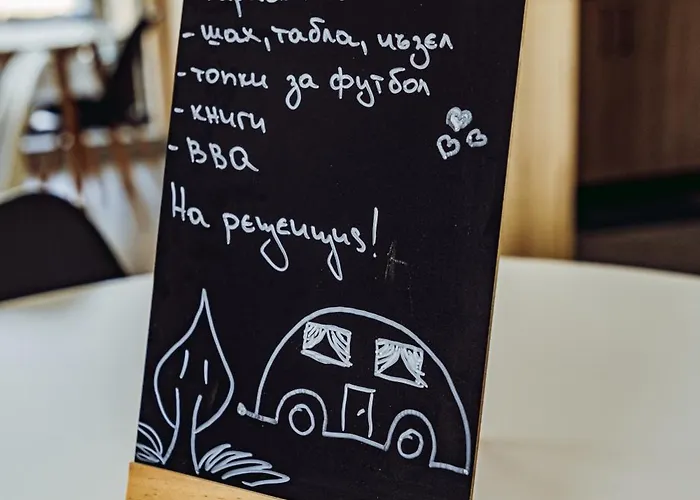 - шах, табла, пъзел
- топки за футбол
- книги
- BBQ
На рецепция!